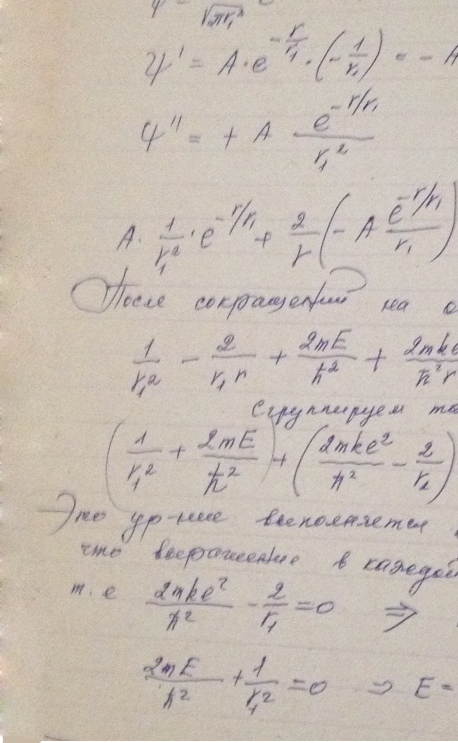 ψ = 1/√πr₁³ e
ψ' = A·e^(-r/r₁)·(-1/r₁) = - A
ψ'' = + A e^(-r/r₁)/r₁²
A·1/r₁²·e^(-r/r₁) + 2/r(-A e^(-r/r₁)/r₁)
После сокращений на о
1/r₁² - 2/r₁r + 2mE/ħ² + 2mke/ħ²r
сгруппируем
(1/r₁² + 2mE/ħ²) + (2mke²/ħ² - 2/r₁)
Это ур-ние выполняется
что выражение в каждой
т.е 2mke²/ħ² - 2/r₁ = 0 ⇒
2mE/ħ² + 1/r₁² = 0 ⇒ E =